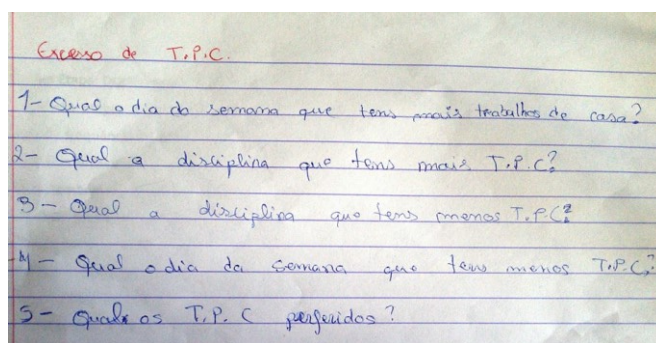 Excesso de T.P.C.
1- Qual o dia da semana que tens mais trabalhos de casa?
2- Qual a disciplina que tens mais T.P.C?
3- Qual a disciplina que tens menos T.P.C?
4- Qual o dia da semana que tens menos T.P.C?
5- Quais os T.P.C perferidos?